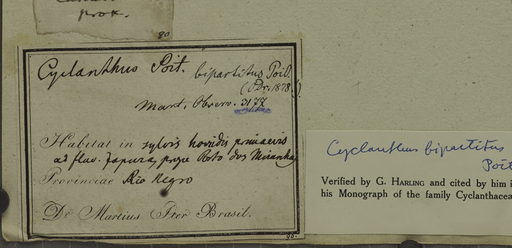 prox.
80
Cyclanthus Poit. bipartitus Poit.
(Dr. 1878.)
Mart. Observ. 3177
Habitat in sylvis horridis primaevis
ad fluv. Japura, prope Porto dos Miranha
Provinciae Rio Negro
Dr. Martius Iter Brasil.
80.
Cyclanthus bipartitus
Poit
Verified by G. HARLING and cited by him i
his Monograph of the family Cyclanthacea